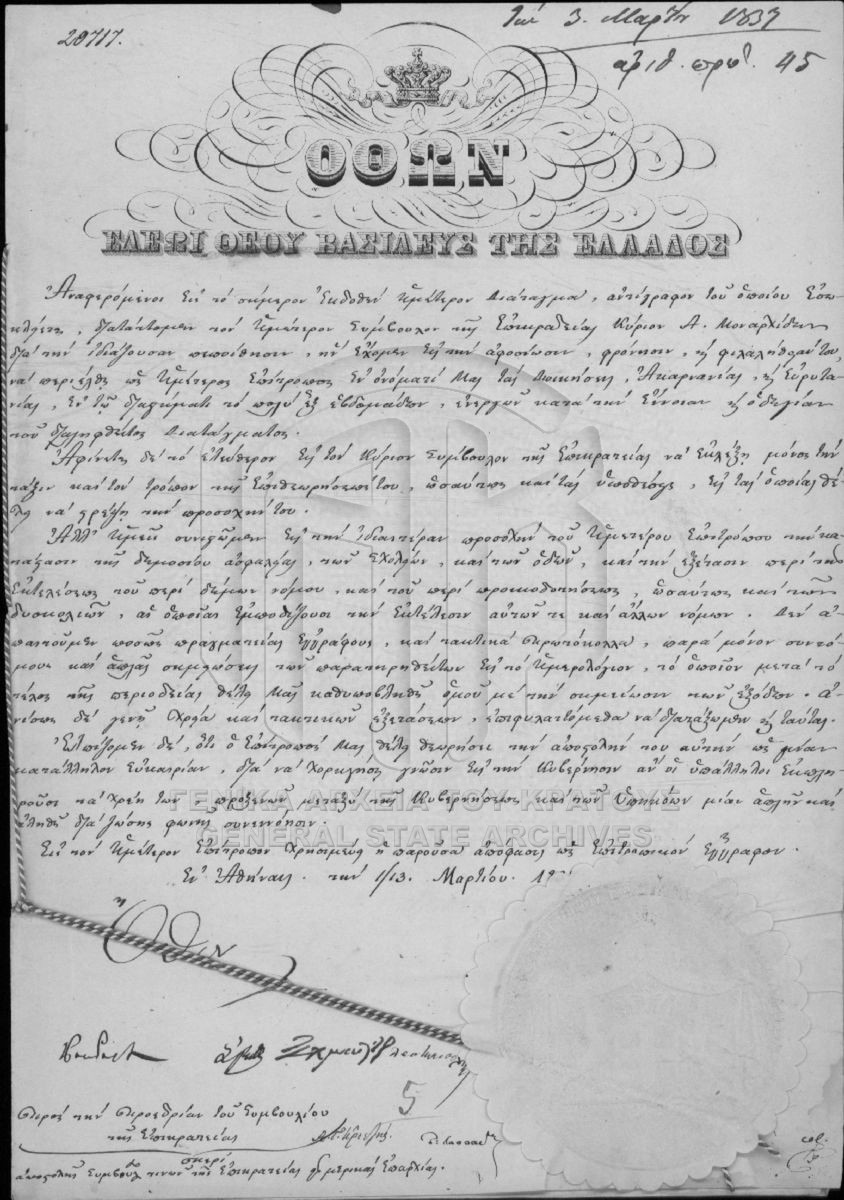 20717.
τῇ 3. Μαρτίου 1837
ἀριθ. πρωτ. 45
ΟΘΩΝ
ΕΛΕΩι ΘΕΟΥ ΒΑΣΙΛΕΥΣ ΤΗΣ ΕΛΛΑΔΟΣ
Ἀναφερόμενοι εἰς τὸ σήμερον ἐκδοθὲν ἡμέτερον Διάταγμα, ἀντίγραφον τοῦ ὁποίου ἐπι-
κλείεται, διατάττομεν τὸν ἡμέτερον Σύμβουλον τῆς Ἐπικρατείας Κύριον Α. Μοναρχίδην
διὰ τὴν ἰδιάζουσαν πεποίθησιν, ἣν ἔχομεν εἰς τὴν ἀφοσίωσιν, φρόνησιν, καὶ φιλαλήθειάν του,
νὰ περιέλθῃ ὡς ἡμέτερος Ἐπίτροπος ἐν ὀνόματί Μας τὰς Διοικήσεις, Ἀκαρνανίας, καὶ Εὐρυτα-
νίας, ἐν τῷ διαστήματι τὸ πολὺ ἓξ ἑβδομάδων, ἐνεργῶν κατὰ τὴν ἔννοιαν καὶ ὁδηγίαν
τοῦ διαληφθέντος Διατάγματος.
Ἀφίνεται δὲ τὸ ἐλεύθερον εἰς τὸν Κύριον Σύμβουλον τῆς Ἐπικρατείας νὰ ἐκλέξῃ μόνος τὴν
τάξιν καὶ τὸν τρόπον τῆς ἐπιθεωρήσεώς του, ὡσαύτως καὶ τὰς ὑποθέσεις, εἰς τὰς ὁποίας θέ-
λει νὰ στρέψῃ τὴν προσοχήν του.
Ἀλλ' ἡμεῖς συνιστῶμεν εἰς τὴν ἰδιαιτέραν προσοχὴν τοῦ ἡμετέρου Ἐπιτρόπου τὴν κα-
τάστασιν τῆς δημοσίου ἀσφαλείας, τῶν Σχολείων, καὶ τῶν ὁδῶν, καὶ τὴν ἐξέτασιν περὶ τῆς
ἐκτελέσεως τοῦ περὶ δήμων νόμου, καὶ τοῦ περὶ προικοδοτήσεως, ὡσαύτως καὶ τῶν
δυσκολιῶν, αἱ ὁποῖαι ἐμποδίζουσι τὴν ἐκτέλεσιν αὐτῶν τε καὶ ἄλλων νόμων. Δὲν ἀ-
παιτοῦμεν ποσῶς πραγματείας ἐγγράφους, καὶ τακτικὰ πρωτόκολλα, παρὰ μόνον συντό-
μους καὶ ἁπλᾶς σημειώσεις τῶν παρατηρηθέντων εἰς τὸ ἡμερολόγιον, τὸ ὁποῖον μετὰ τὸ
τέλος τῆς περιοδείας θέλει Μᾶς καθυποβληθῆ ὁμοῦ μὲ τὴν σημείωσιν τῶν ἐξόδων. Ἀ-
νίσως δὲ γένῃ χρεία καὶ τακτικῶν ἐξετάσεων, ἐπιφυλαττόμεθα νὰ διατάξωμεν καὶ ταύτας.
Ἐλπίζομεν δὲ, ὅτι ὁ Ἐπίτροπός Μας θέλει θεωρήσει τὴν ἀποστολήν του αὐτὴν ὡς μίαν
κατάλληλον εὐκαιρίαν, διὰ νὰ χορηγήσῃ γνῶσιν εἰς τὴν Κυβέρνησιν ἂν οἱ ὑπάλληλοι ἐκπλη-
ροῦσι τὰ χρέη των προξενῶν μεταξὺ τῆς Κυβερνήσεως καὶ τῶν ὑπηκόων μίαν ἁπλῆν καὶ
ἀληθῆ διὰ ζώσης φωνῆς συνεννόησιν.
Εἰς τὸν ἡμέτερον Ἐπίτροπον χρησιμεύει ἡ παροῦσα ἀπόφασις ὡς ἐπιτροπικὸν ἔγγραφον.
Ἐν Ἀθήναις τὴν 1/13. Μαρτίου.
Ὄθων
ΓΕΝΙΚΑ ΑΡΧΕΙΑ ΤΟΥ ΚΡΑΤΟΥΣ
GENERAL STATE ARCHIVES
5
Πρὸς τὴν Προεδρίαν τοῦ Συμβουλίου
τῆς Ἐπικρατείας
περὶ
ἀποστολῆς Συμβούλ. τινων τῆς Ἐπικρατείας εἰς μερικὰς Ἐπαρχίας.
col.